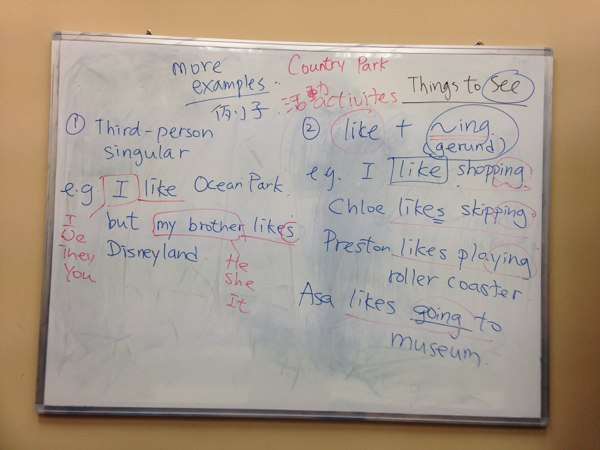 more
examples.
例子
Country Park
活動 activites
Things to see
① Third-person
singular
e.g I like Ocean Park.
but my brother likes
Disneyland.
I
We
They
You
He
She
It
② like + ~ing
(gerund)
e.g. I like shopping
Chloe likes skipping
Preston likes playing
roller coaster
Asa likes going to
museum.